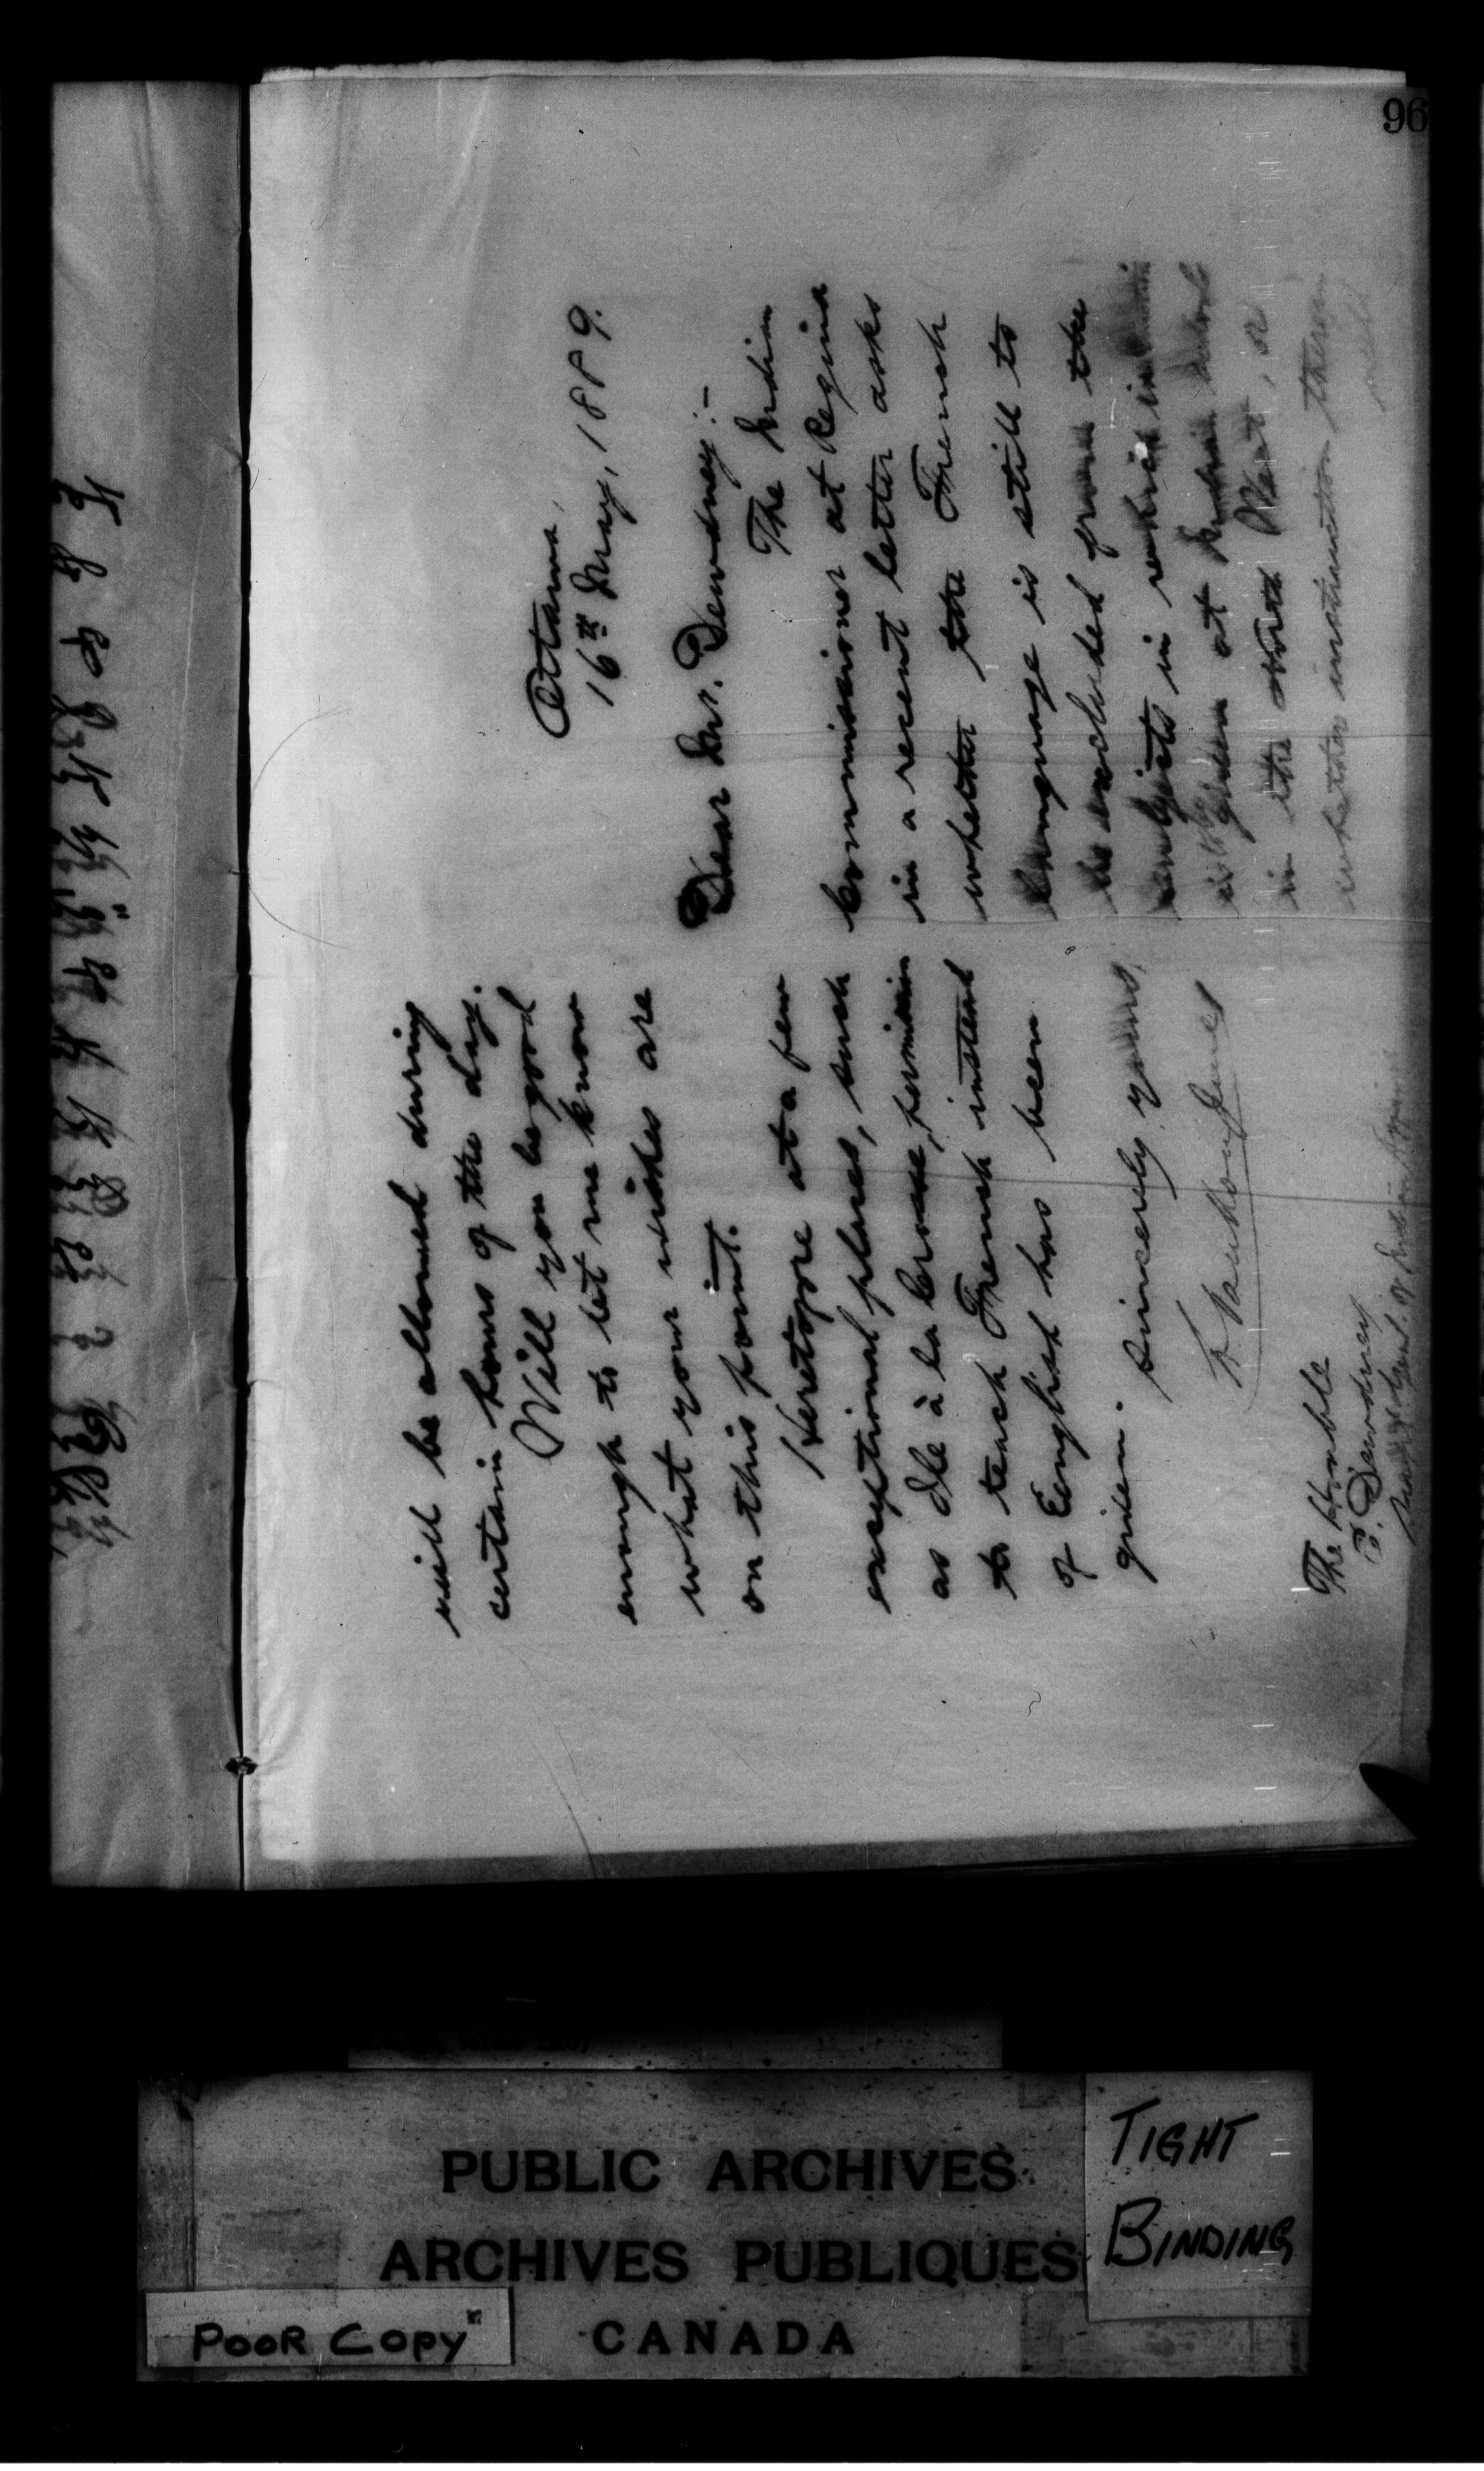 96
Ottawa,
16th May, 1889.
Dear Mr. Dewdney:-
The Indian
Commissioner at Regina
in a recent letter asks
whether the French
language is still to
be excluded from the
subjects in which instruction
is to be given at Indian schools
in the North West, or
whether instruction therein
will be allowed during
certain hours of the day.
Will you be good
enough to let me know
what your wishes are
on this point.
Heretofore at a few
exceptional places, such
as Ile à la Crosse, permission
to teach French instead
of English has been
given.
Sincerely yours,
L. Vankoughnet
The Honble
E. Dewdney
of Indian Affairs
PUBLIC ARCHIVES
ARCHIVES PUBLIQUES
CANADA
POOR COPY
TIGHT
BINDING